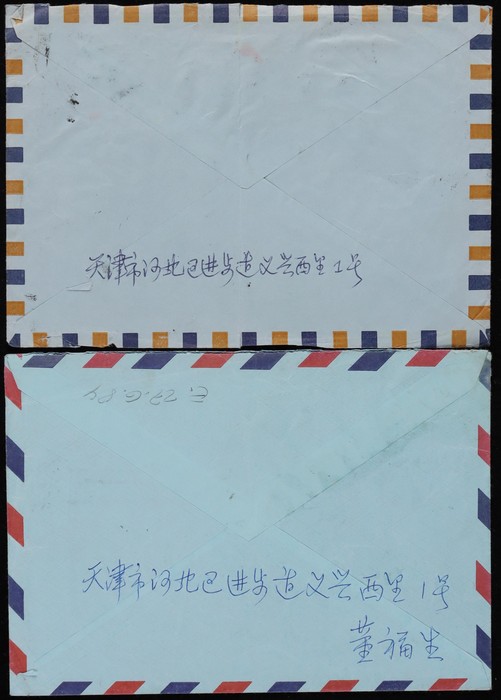 天津市河北区进步道义兴西里1号
E. 27.6.84
天津市河北区进步道义兴西里1号
董福生